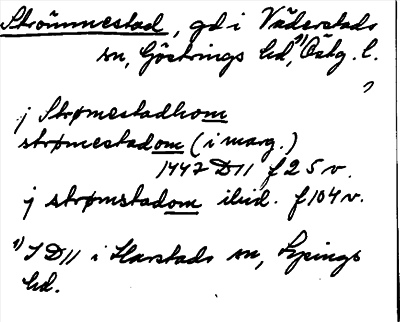 Strömmestad, gd i Väderstads
sn, Göstrings hd,¹⁾ Östg. l.
j Strømestadhom
strømestadom (i marg.)
1447 D11 f 25 v.
j strømstadom ibid. f 104 v.
¹⁾ I D11 i Harstads sn, Lysings
hd.